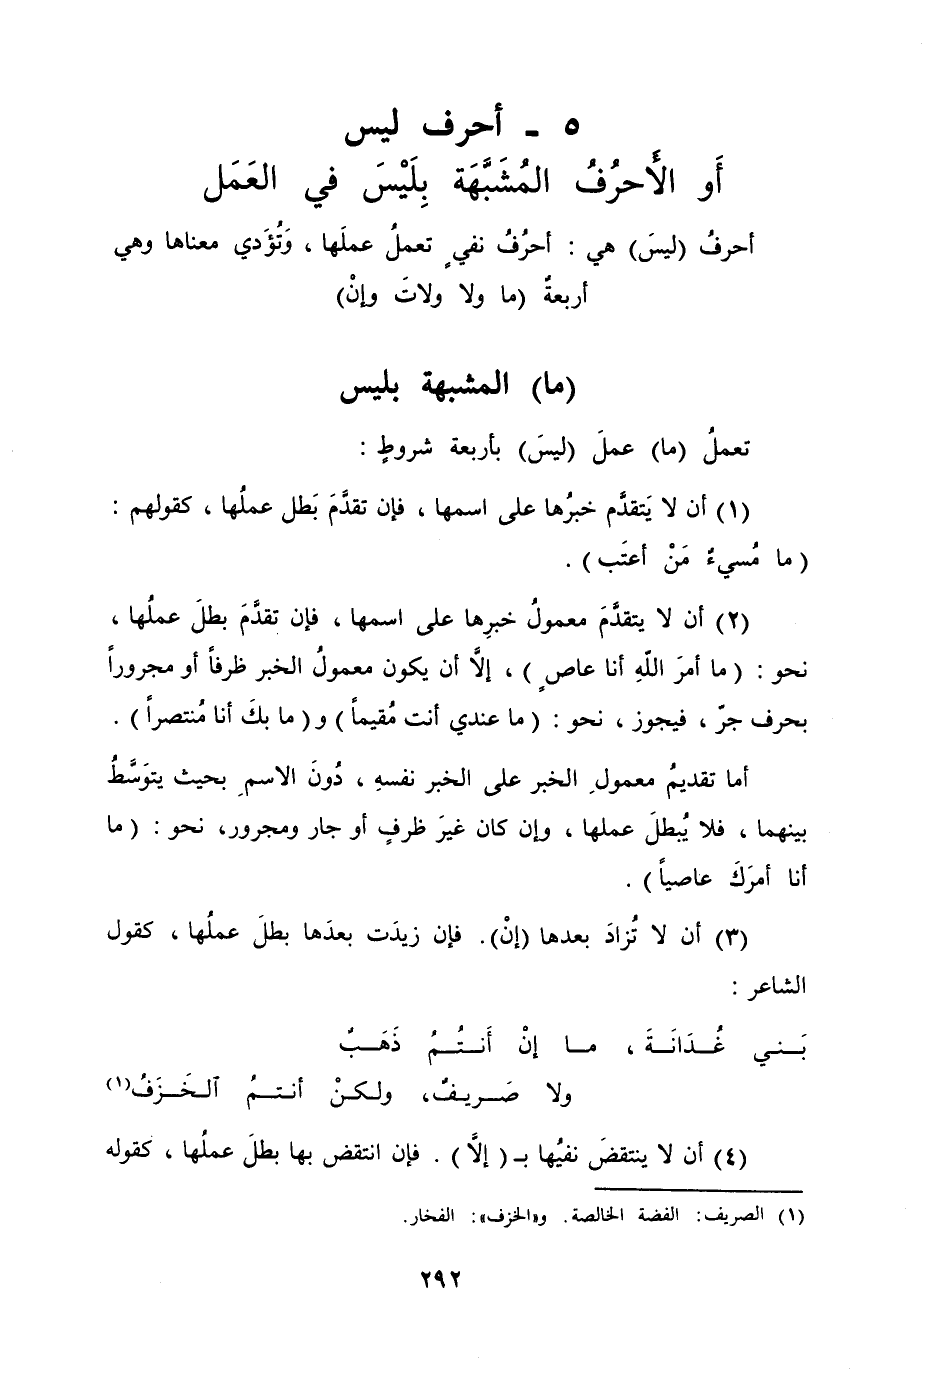 ٥ - أحرف ليس
أَو الأَحرُفُ المُشَبَّهَة بِلَيْسَ في العَمَل
أحرفُ (ليسَ) هي : أحرُفُ نفيٍ تعملُ عملَها ، وَتُؤَدي معناها وهي
أربعةٌ (ما ولا ولاتَ وإنْ)
(ما) المشبهة بليس
تعملُ (ما) عملَ (ليسَ) بأربعة شروطٍ :
(١) أن لا يَتقدَّم خبرُها على اسمها ، فإن تقدَّمَ بَطل عملُها ، كقولهم :
( ما مُسيءٌ مَنْ أعتَب ) .
(٢) أن لا يتقدَّمَ معمولُ خبرِها على اسمها ، فإن تقدَّمَ بطلَ عملُها ،
نحو : ( ما أمرَ اللّهِ أنا عاصٍ ) ، إلَّا أن يكون معمولُ الخبر ظرفاً أو مجروراً
بحرف جرّ ، فيجوز ، نحو : ( ما عندي أنت مُقيماً ) و( ما بكَ أنا مُنتصراً ) .
أما تقديمُ معمولِ الخبر على الخبر نفسهِ ، دُونَ الاسمِ بحيث يتوَسَّطُ
بينهما ، فلا يُبطلَ عملها ، وإن كان غيرَ ظرفٍ أو جار ومجرور، نحو : ( ما
أنا أمرَكَ عاصياً ) .
(٣) أن لا تُزادَ بعدها (إنْ). فإن زيدَت بعدَها بطلَ عملُها ، كقول
الشاعر :
بَـنـي غُـدَانَـةَ ، مـا إنْ أَنـتُـمُ ذَهَـبٌ
ولا صَـريـفٌ، ولـكـنْ أنـتـمُ ٱلـخَـزَفُ(١)
(٤) أن لا ينتقضَ نفيُها بـ( إلَّا ) . فإن انتقض بها بطلَ عملُها ، كقوله
(١) الصريف: الفضة الخالصة. و«الخزف»: الفخار.
٢٩٢